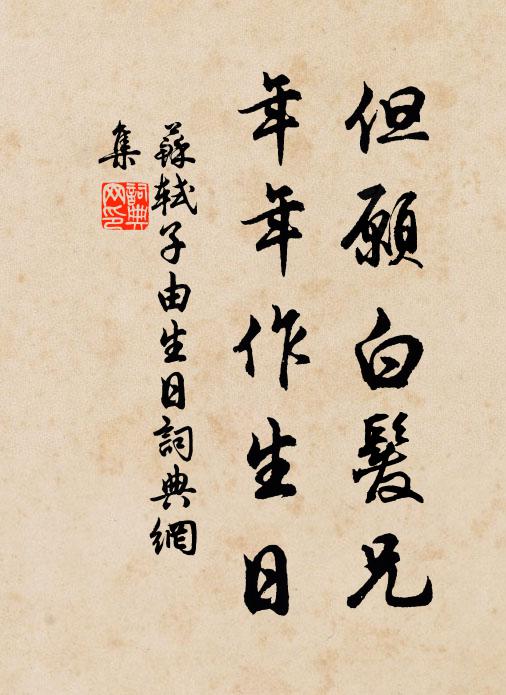 但願白髮兄
年年作生日
蘇軾子由生日詞典網
集
詞典
网印